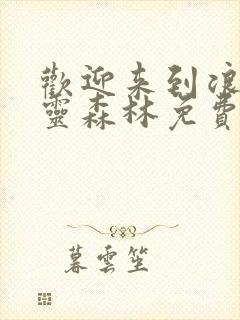 歡迎来到浪
靈森林免費
暮雲笙